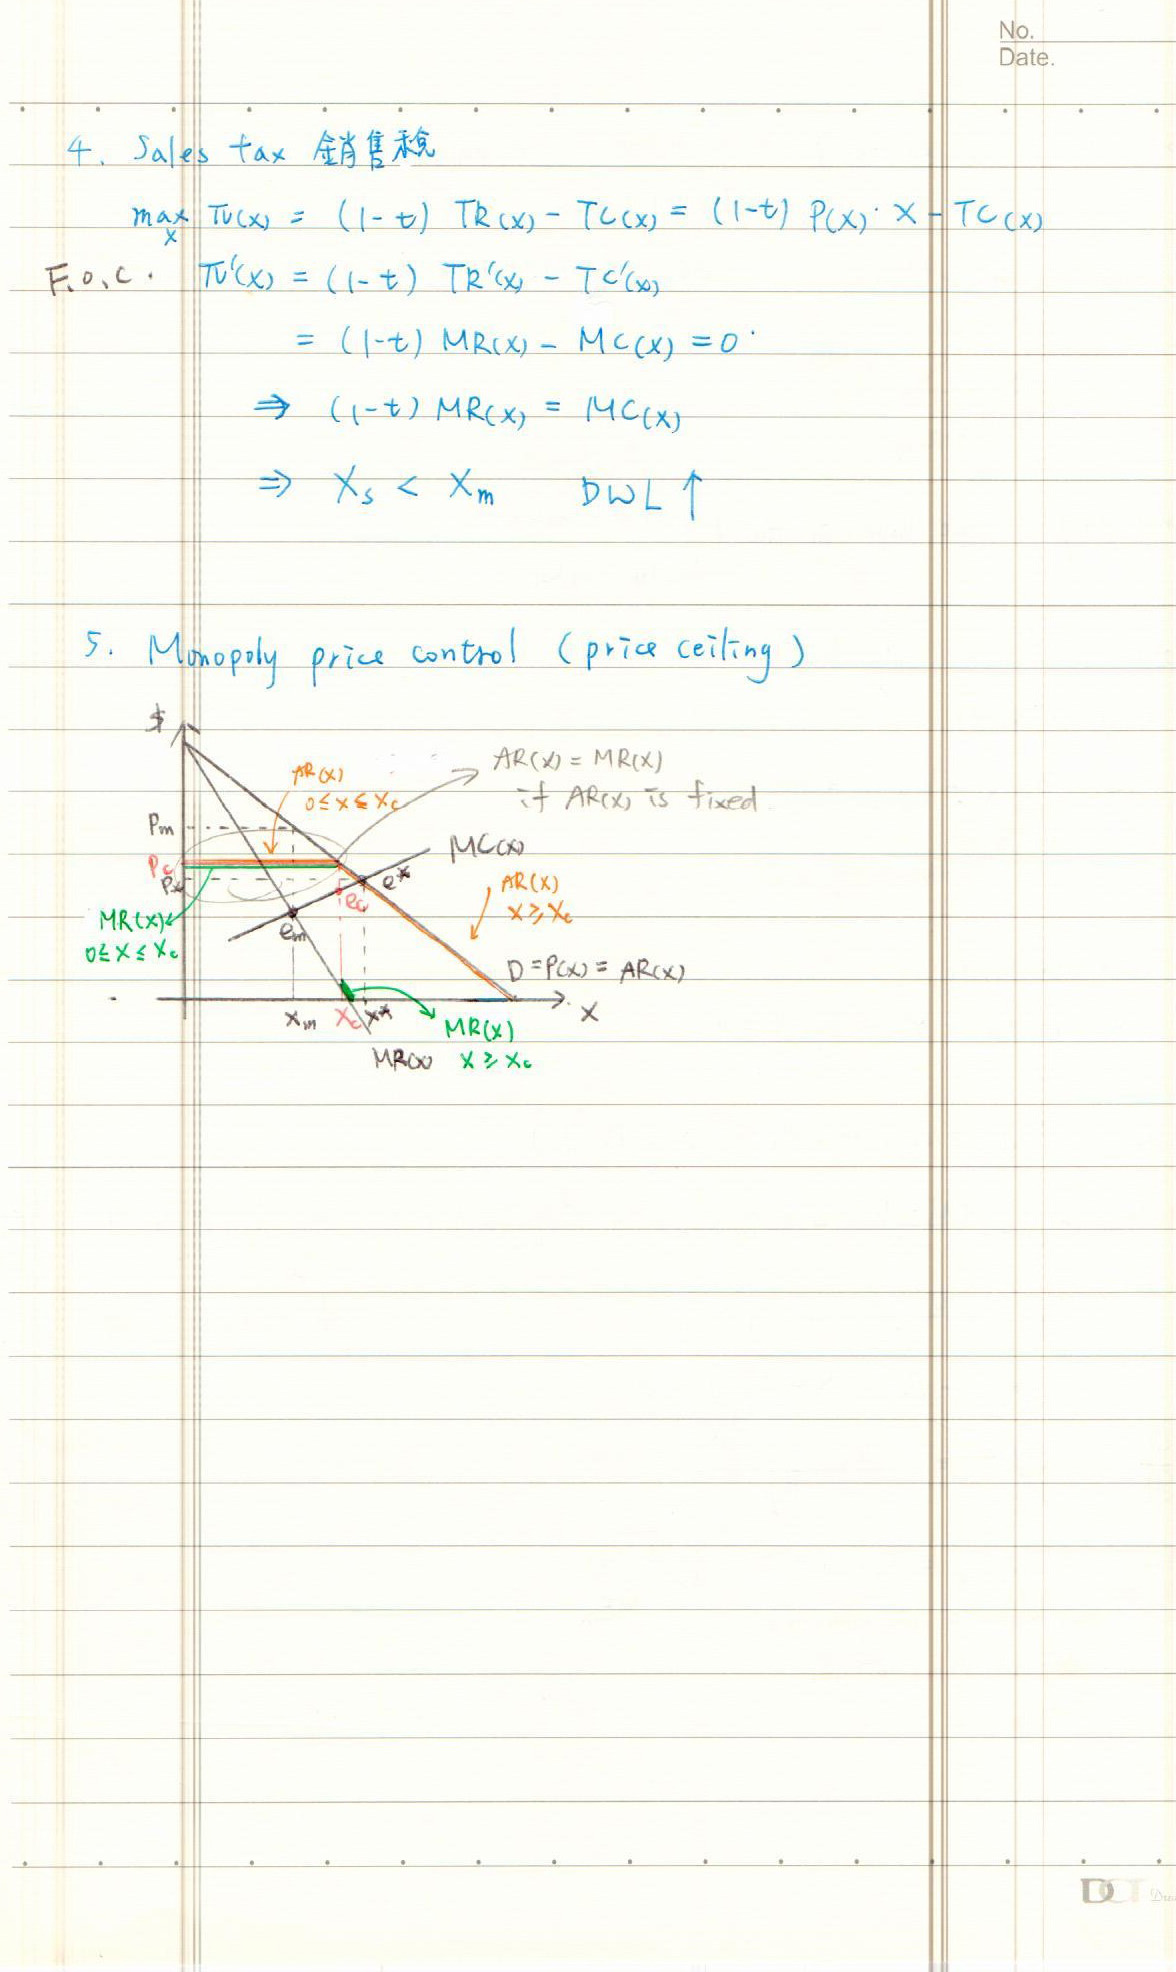 No.
Date.
4. Sales tax 銷售稅
max π(x) = (1-t) TR(x) - TC(x) = (1-t) P(x)·X - TC(x)
x
F.o.c. π'(x) = (1-t) TR'(x) - TC'(x)
= (1-t) MR(x) - MC(x) = 0
⇒ (1-t) MR(x) = MC(x)
⇒ Xs < Xm DWL ↑
5. Monopoly price control (price ceiling)
$
AR(x) = MR(x)
if AR(x) is fixed
AR(x)
0 ≤ x ≤ Xc
Pm
MC(x)
Pc
P*
e*
ec
AR(x)
x ≥ Xc
MR(x)
0 ≤ x ≤ Xc
em
D = P(x) = AR(x)
Xm Xc X*
X
MR(x)
x ≥ Xc
MR(x)
DCT